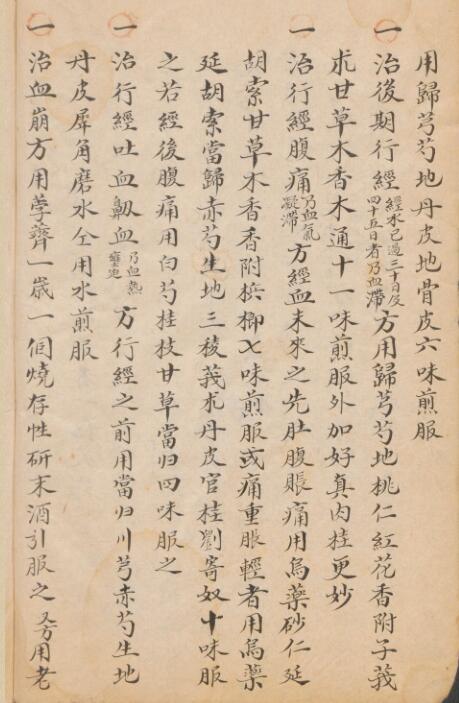 用歸芎芍地丹皮地骨皮六味煎服
一治後期行經經水已過三十日及四十五日者乃血滯方用歸芎芍地桃仁紅花香附子莪
朮甘草木香木通十一味煎服外加好真肉桂更妙
一治行經腹痛乃血氣凝滯方經血未來之先肚腹脹痛用烏藥砂仁延
胡索甘草木香香附梹榔七味煎服或痛重脹輕者用烏藥
延胡索當歸赤芍生地三稜莪朮丹皮官桂劉寄奴十味服
之若經後腹痛用白芍桂枝甘草當归四味服之
一治行經吐血衄血乃血熱方行經之前用當归川芎赤芍生地
丹皮犀角磨水仝用水煎服
一治血崩方用荸薺一歲一個燒存性研末酒引服之又方用老